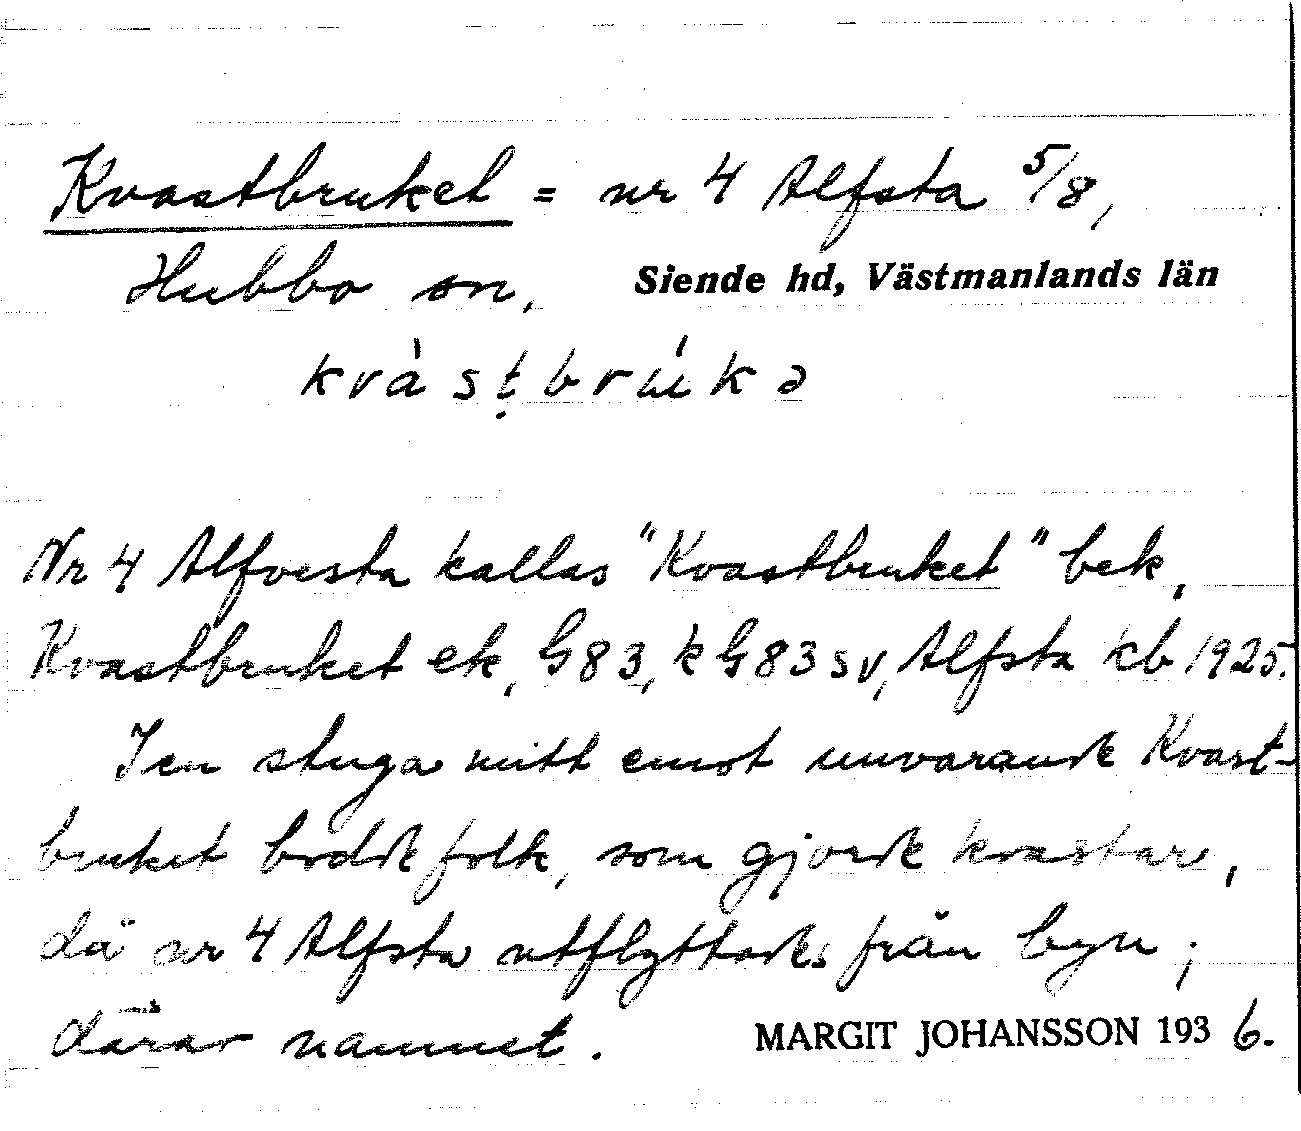 Kvastbruket = nr 4 Alfsta 5/8,
Hubbo sn, Siende hd, Västmanlands län
kvàsṭbrúkə
Nr 4 Alfvesta kallas "Kvastbruket" bek,
Kvastbruket ek, G83, k G83 sv, Alfsta kb 1925.
I en stuga mitt emot nuvarande Kvast-
bruket bodde folk, som gjorde kvastare,
då nr 4 Alfsta utflyttades från byn;
därav namnet. MARGIT JOHANSSON 1936.